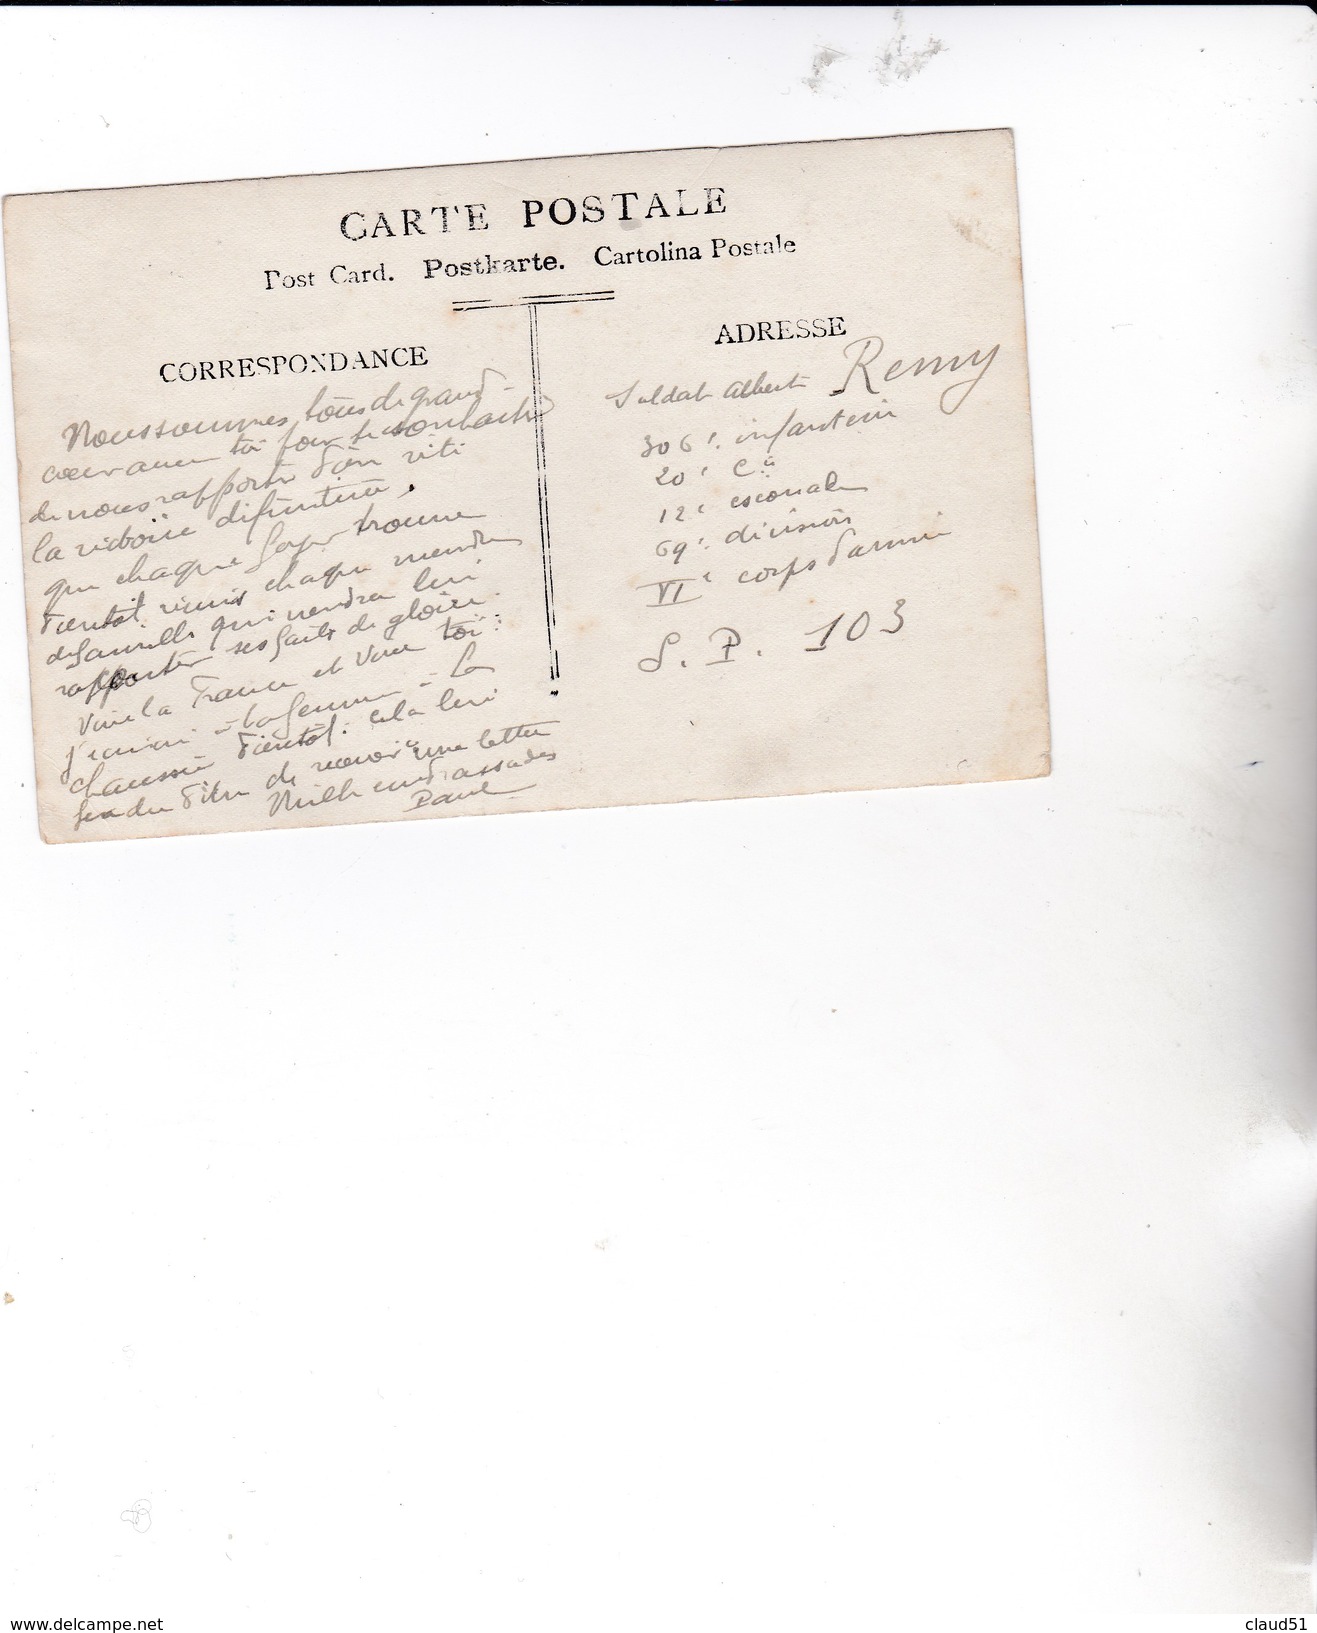 CARTE POSTALE
Post Card. Postkarte. Cartolina Postale
CORRESPONDANCE
Nous sommes tous de grand
cœur avec toi pour te souhaiter
de nous rapporter bien vite
la victoire difinitive,
que chaque foyer trouve
bientôt réunis chaque membre
de famille qui viendra lui
rapporter ses faits de gloire.
Vive la France et Vive toi :
J'écrirai à ta femme à La
chaussée bientôt. cela lui
fera du bien de recevoir une lettre
Mille embrassades
Paul
ADRESSE
Soldat Albert Remy
306e infanterie
20e Cie
12e escouade
69e division
VIe corps d'armée
S. P. 103
www.delcampe.net
claud51